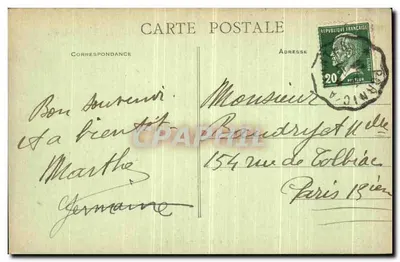 CARTE POSTALE
CORRESPONDANCE
ADRESSE
REPUBLIQUE FRANÇAISE
20
PORNIC-A
CPAPHIL
Bon souvenir.
et a bientôt
Marthe
Germaine
Monsieur
Baudry et Mlle
154 rue de Tolbiac
Paris 13ième